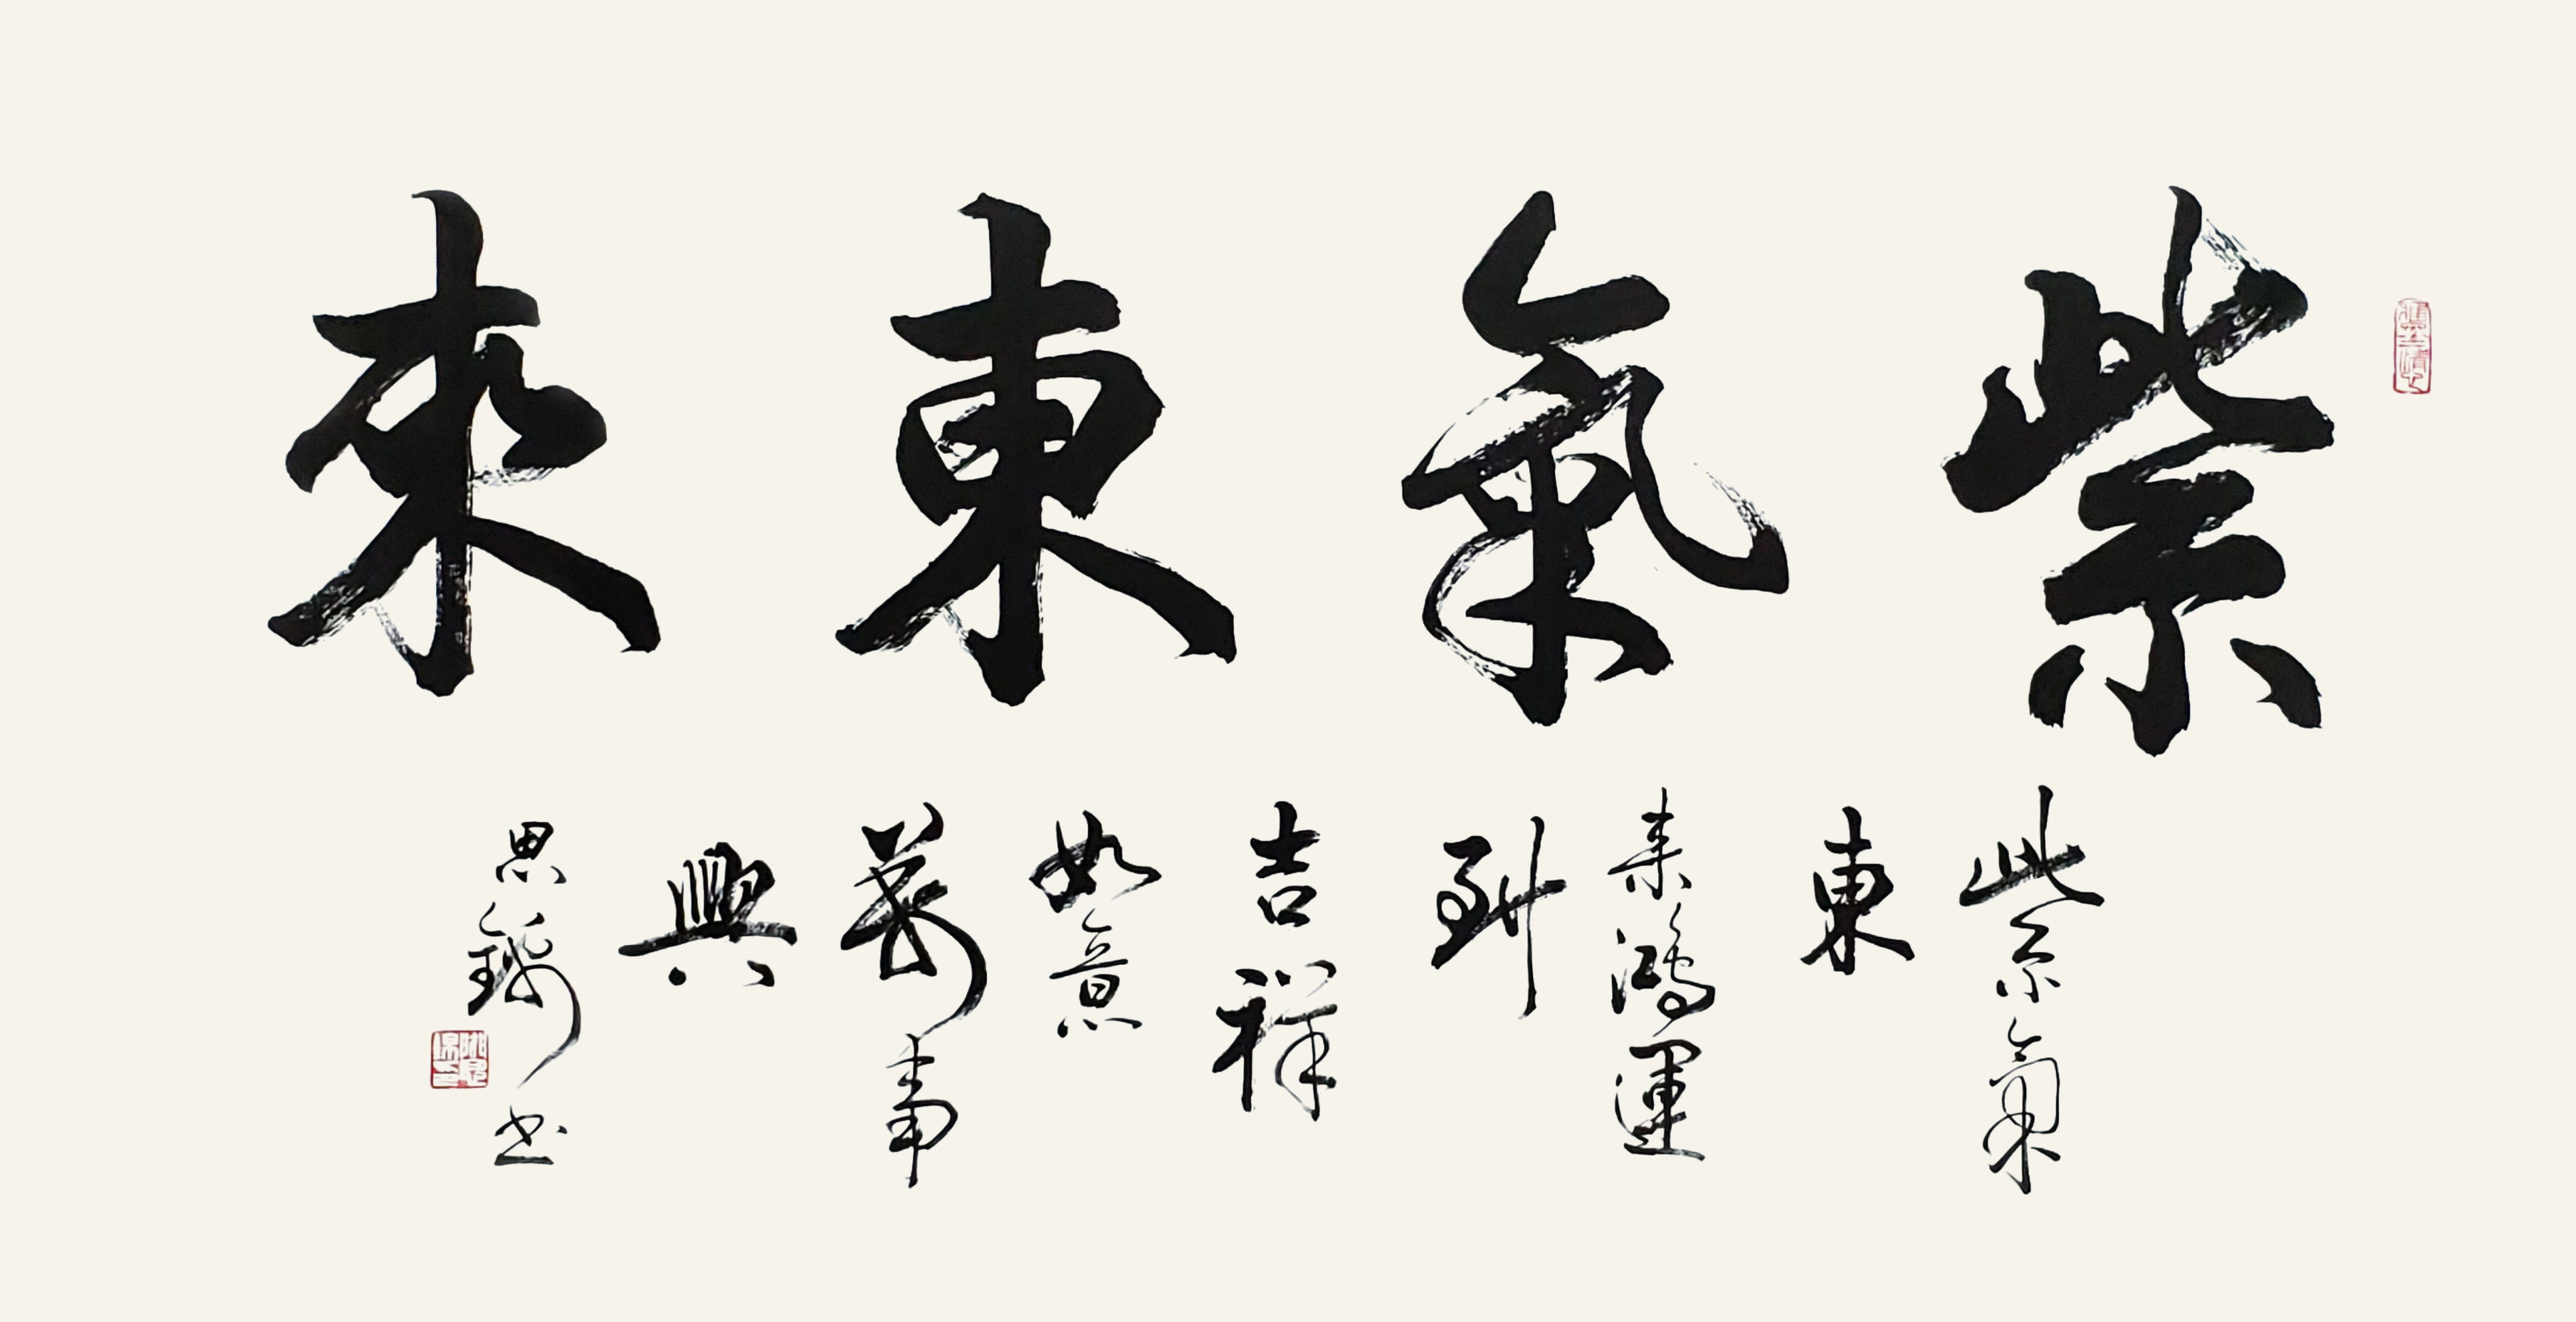 紫氣東來
紫氣
東
来鴻運
到
吉祥
如意
萬事
興
思錦书